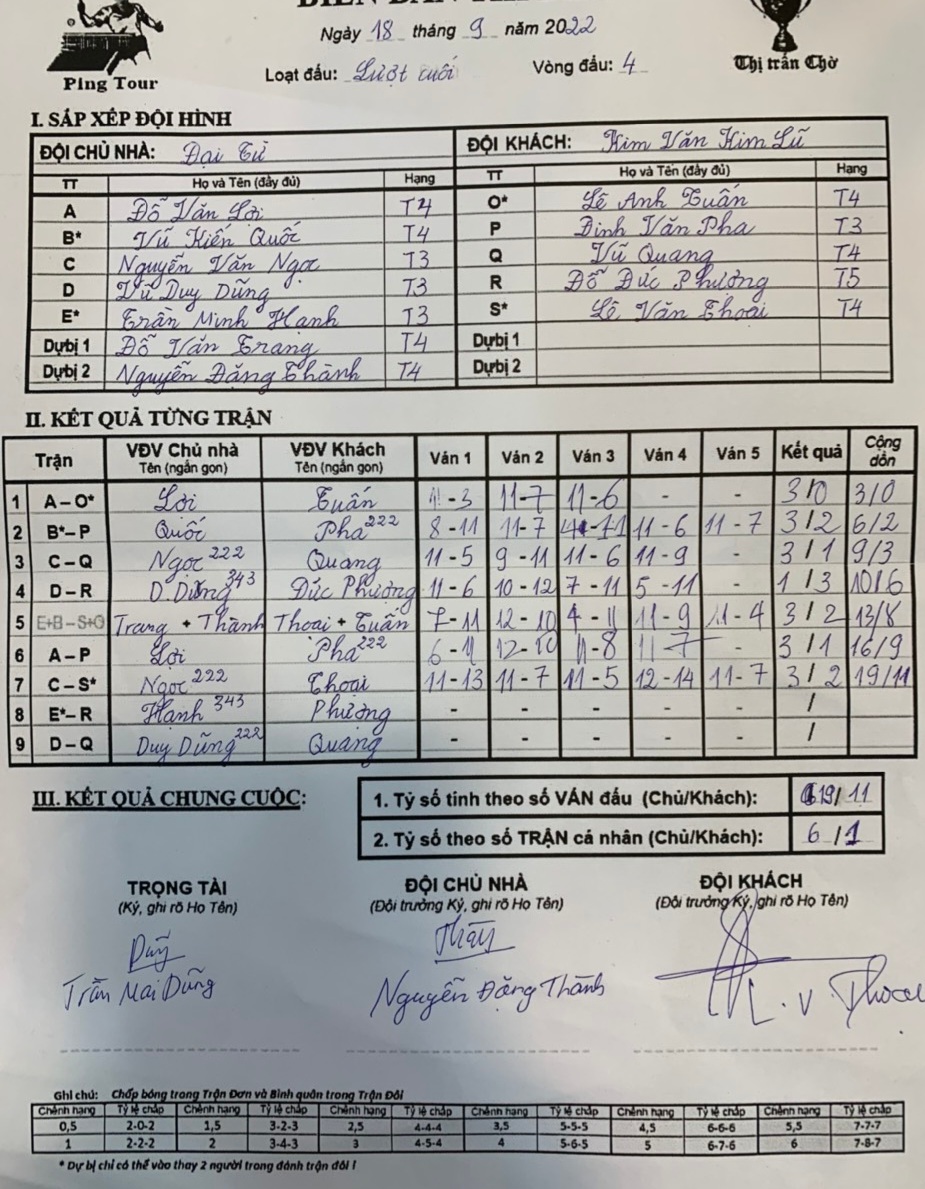 Ping Tour
Ngày 18 tháng 9 năm 2022
Loạt đấu: Lượt cuối Vòng đấu: 4
Thị trấn Chờ
I. SẮP XẾP ĐỘI HÌNH
ĐỘI CHỦ NHÀ: Đại Từ ĐỘI KHÁCH: Kim Văn Kim Lũ
TT Họ và Tên (đầy đủ) Hạng TT Họ và Tên (đầy đủ) Hạng
A Đỗ Văn Lợi T4 O* Lê Anh Tuấn T4
B* Vũ Kiến Quốc T4 P Đinh Văn Pha T3
C Nguyễn Văn Ngọc T3 Q Vũ Quang T4
D Vũ Duy Dũng T3 R Đỗ Đức Phường T5
E* Trần Minh Hạnh T3 S* Lê Văn Thoại T4
Dự bị 1 Đỗ Văn Trang T4 Dự bị 1
Dự bị 2 Nguyễn Đăng Thành T4 Dự bị 2
II. KẾT QUẢ TỪNG TRẬN
Trận VĐV Chủ nhà Tên (ngắn gọn) VĐV Khách Tên (ngắn gọn) Ván 1 Ván 2 Ván 3 Ván 4 Ván 5 Kết quả Cộng dồn
1 A – O* Lợi Tuấn 11-3 11-7 11-6 - - 3/0 3/0
2 B* – P Quốc Pha 222 8-11 11-7 4-11 11-6 11-7 3/2 6/2
3 C – Q Ngọc 222 Quang 11-5 9-11 11-6 11-9 - 3/1 9/3
4 D – R D.Dũng 343 Đức Phường 11-6 10-12 7-11 5-11 - 1/3 10/6
5 E+B – S+O Trang + Thành Thoại + Tuấn 7-11 12-10 4-11 11-9 11-4 3/2 13/8
6 A – P Lợi Pha 222 6-11 12-10 11-8 11-7 - 3/1 16/9
7 C – S* Ngọc 222 Thoại 11-13 11-7 11-5 12-14 11-7 3/2 19/11
8 E* – R Hạnh 343 Phường - - - - - /
9 D – Q Duy Dũng 222 Quang - - - - - /
III. KẾT QUẢ CHUNG CUỘC:
1. Tỷ số tính theo số VÁN đấu (Chủ/Khách): 19/11
2. Tỷ số theo số TRẬN cá nhân (Chủ/Khách): 6/1
TRỌNG TÀI ĐỘI CHỦ NHÀ ĐỘI KHÁCH
(Ký, ghi rõ Họ Tên) (Đội trưởng Ký, ghi rõ Họ Tên) (Đội trưởng Ký, ghi rõ Họ Tên)
Trần Mai Dũng Nguyễn Đăng Thành L.V Thoại
Ghi chú: Chấp bóng trong Trận Đơn và Bình quân trong Trận Đôi
Chênh hạng Tỷ lệ chấp Chênh hạng Tỷ lệ chấp Chênh hạng Tỷ lệ chấp Chênh hạng Tỷ lệ chấp Chênh hạng Tỷ lệ chấp Chênh hạng Tỷ lệ chấp
0,5 2-0-2 1,5 3-2-3 2,5 4-4-4 3,5 5-5-5 4,5 6-6-6 5,5 7-7-7
1 2-2-2 2 3-4-3 3 4-5-4 4 5-6-5 5 6-7-6 6 7-8-7
* Dự bị chỉ có thể vào thay 2 người trong đánh trận đôi !